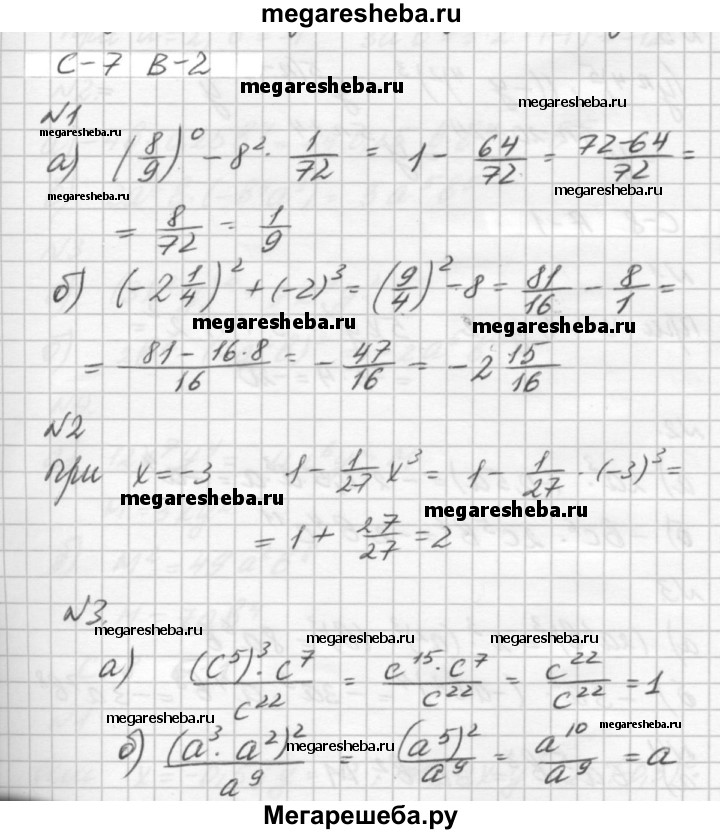 megaresheba.ru
С-7 В-2
megaresheba.ru megaresheba.ru
№1
megaresheba.ru
а) (8/9)^0 - 8^2 · 1/72 = 1 - 64/72 = (72-64)/72 =
megaresheba.ru
megaresheba.ru
= 8/72 = 1/9
б) (-2 1/4)^2 + (-2)^3 = (9/4)^2 - 8 = 81/16 - 8/1 =
megaresheba.ru megaresheba.ru
= (81 - 16·8)/16 = - 47/16 = -2 15/16
№2
при x = -3 1 - 1/27 x^3 = 1 - 1/27 · (-3)^3 =
megaresheba.ru megaresheba.ru
= 1 + 27/27 = 2
№3.
megaresheba.ru megaresheba.ru megaresheba.ru
а) ((c^5)^3 · c^7)/c^22 = (c^15 · c^7)/c^22 = c^22/c^22 = 1
megaresheba.ru megaresheba.ru
б) (a^3 · a^2)^2/a^9 = (a^5)^2/a^9 = a^10/a^9 = a
megaresheba.ru
Мегарешеба.ру